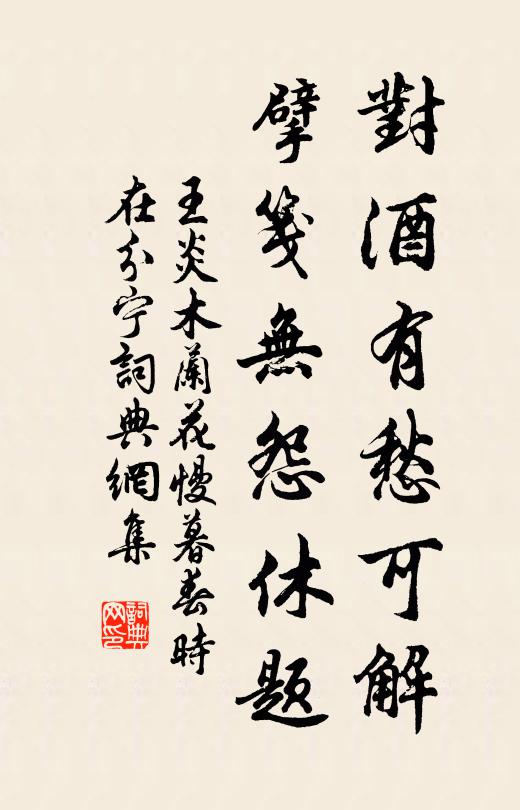 對酒有愁可解
擘箋無怨休題
王炎木蘭花慢暮春時
在分宁詞典網集
詞典
网印